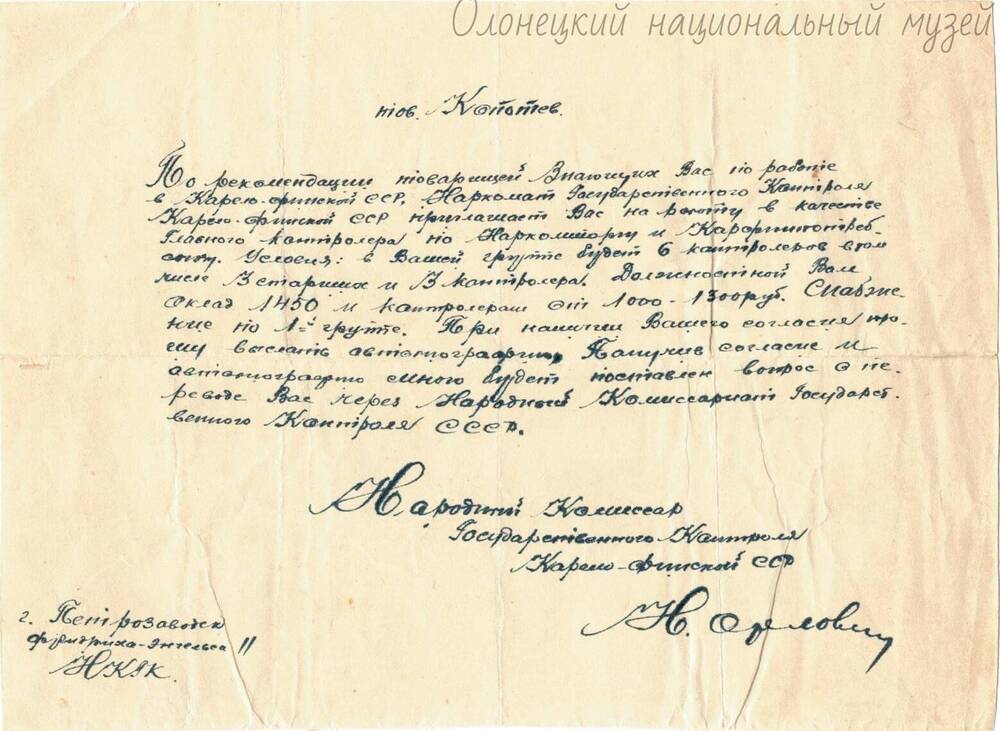 Олонецкий национальный музей
тов. Копотев.
По рекомендации товарищей знающих Вас по работе
в Карело-финской ССР, Наркомат Государственного Контроля
Карело-Финской ССР приглашает Вас на работу в качестве
Главного контролера по Наркомторгу и Карфинпотреб-
союзу. Условия: в Вашей группе будет 6 контролеров в том
числе 3 старших и 3 контролера. Должностной Вам
оклад 1450 и контролерам от 1000-1300 руб. Снабже-
ние по 1-й группе. При наличии Вашего согласия про-
шу выслать автобиографию. Получив согласие и
автобиографию мною будет поставлен вопрос о пе-
реводе Вас через Народный Комиссариат Государст-
венного Контроля СССР.
Народный Комиссар
Государственного Контроля
Карело-Финской ССР
Н. Орлович
г. Петрозаводск
Фридриха-Энгельса 11
НКГК.